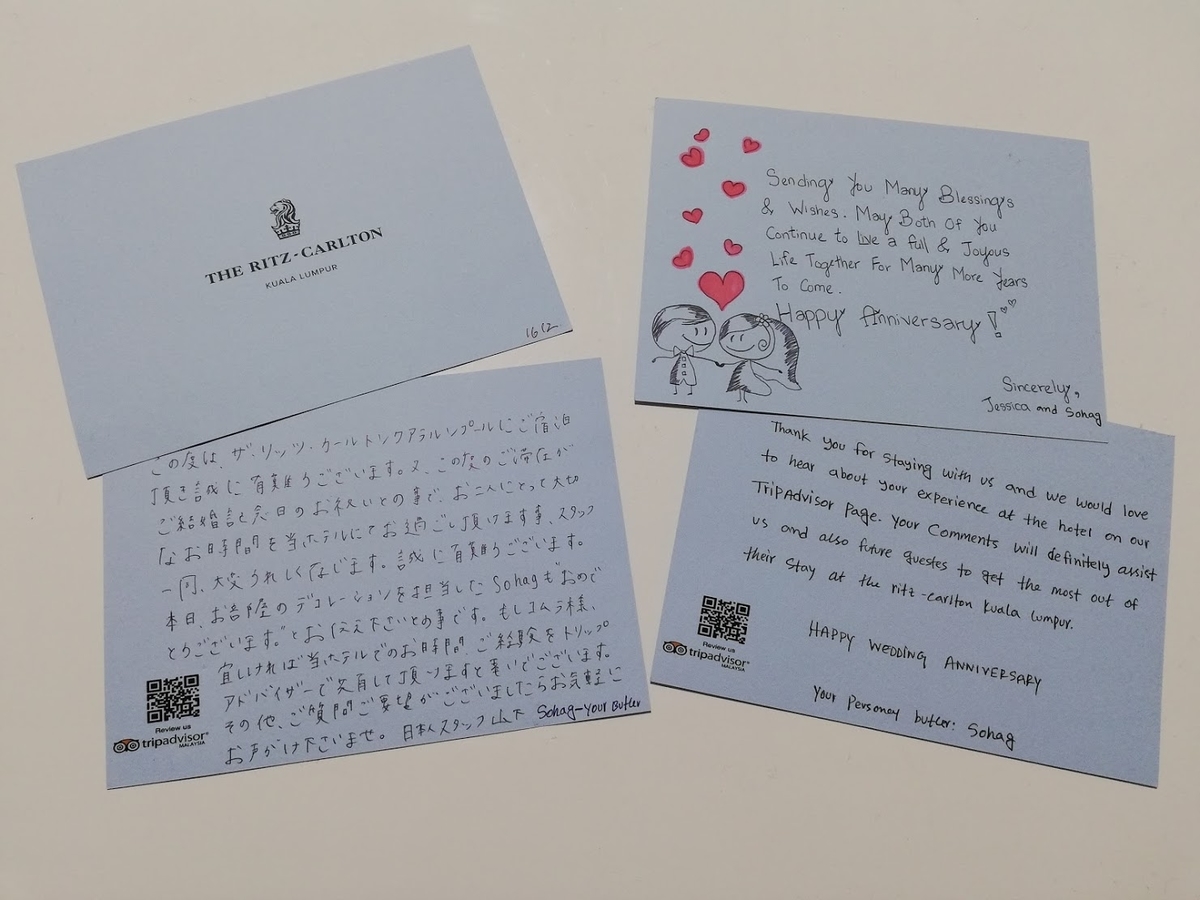 THE RITZ-CARLTON
KUALA LUMPUR
1612
Sending You Many Blessings
& Wishes. May Both Of You
Continue to Live a full & Joyous
Life Together For Many More Years
To Come.
Happy Anniversary!
Sincerely,
Jessica and Sohag
この度は、ザ・リッツ・カールトンクアラルンプールにご宿泊
頂き誠に有難うございます。又、この度のご滞在が
ご結婚記念日のお祝いとの事で、お二人にとって大切
なお時間を当ホテルにてお過ごし頂けます事、スタッフ
一同、大変うれしく存じます。誠に有難うございます。
本日、お部屋のデコレーションを担当したSohagも"おめで
とうございます"とお伝え下さいとの事です。もしコムラ様、
宜しければ当ホテルでのお時間、ご経験をトリップ
アドバイザーで共有して頂けますと幸いでございます。
その他、ご質問ご要望がございましたらお気軽に
お声がけ下さいませ。 日本人スタッフ 山下 Sohag-Your Butler
Review us
tripadvisor®
MALAYSIA
Thank you for staying with us and we would love
to hear about your experience at the hotel on our
TripAdvisor Page. Your Comments will definitely assist
us and also future guestes to get the most out of
their stay at the ritz-carlton kuala lumpur.
HAPPY WEDDING ANNIVERSARY
Your Personay butler: Sohag
Review us
tripadvisor®
MALAYSIA